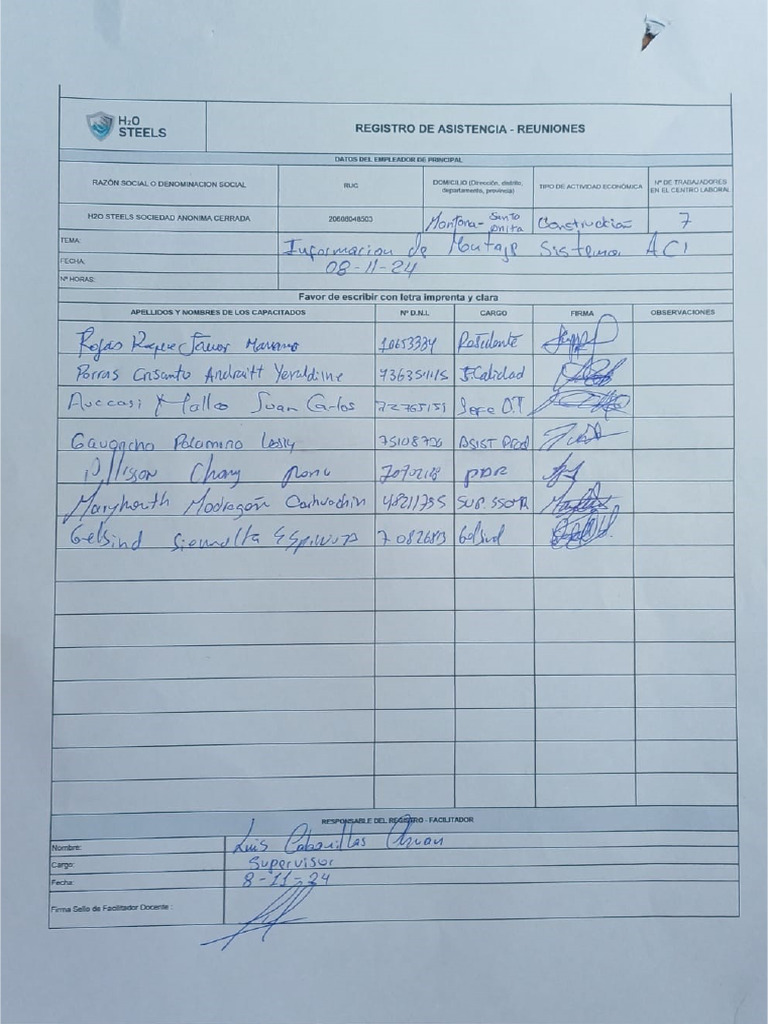 H2O
STEELS
REGISTRO DE ASISTENCIA - REUNIONES
DATOS DEL EMPLEADOR DE PRINCIPAL
RAZÓN SOCIAL O DENOMINACION SOCIAL RUC DOMICILIO (Dirección, distrito, departamento, provincia) TIPO DE ACTIVIDAD ECONÓMICA Nº DE TRABAJADORES EN EL CENTRO LABORAL
H2O STEELS SOCIEDAD ANONIMA CERRADA 20608048503 Montana - Santa Anita Construcción 7
TEMA: Informacion de Montaje Sistema ACI
FECHA: 08-11-24
Nº HORAS:
Favor de escribir con letra imprenta y clara
APELLIDOS Y NOMBRES DE LOS CAPACITADOS Nº D.N.I. CARGO FIRMA OBSERVACIONES
Rojas Javier Mariano 10653334 Residente
Porras Crisanto Andraitt Yeraldine Calidad
Juan Carlos 72765151 Jefe O.T
Palomino Lesly 75108726 ASIST Prod
Chang
Maryhouth Carhuachin 48211755
Gelsind
RESPONSABLE DEL REGISTRO - FACILITADOR
Nombre: Luis Cabanillas
Cargo: Supervisor
Fecha: 8-11-24
Firma Sello de Facilitador Docente :